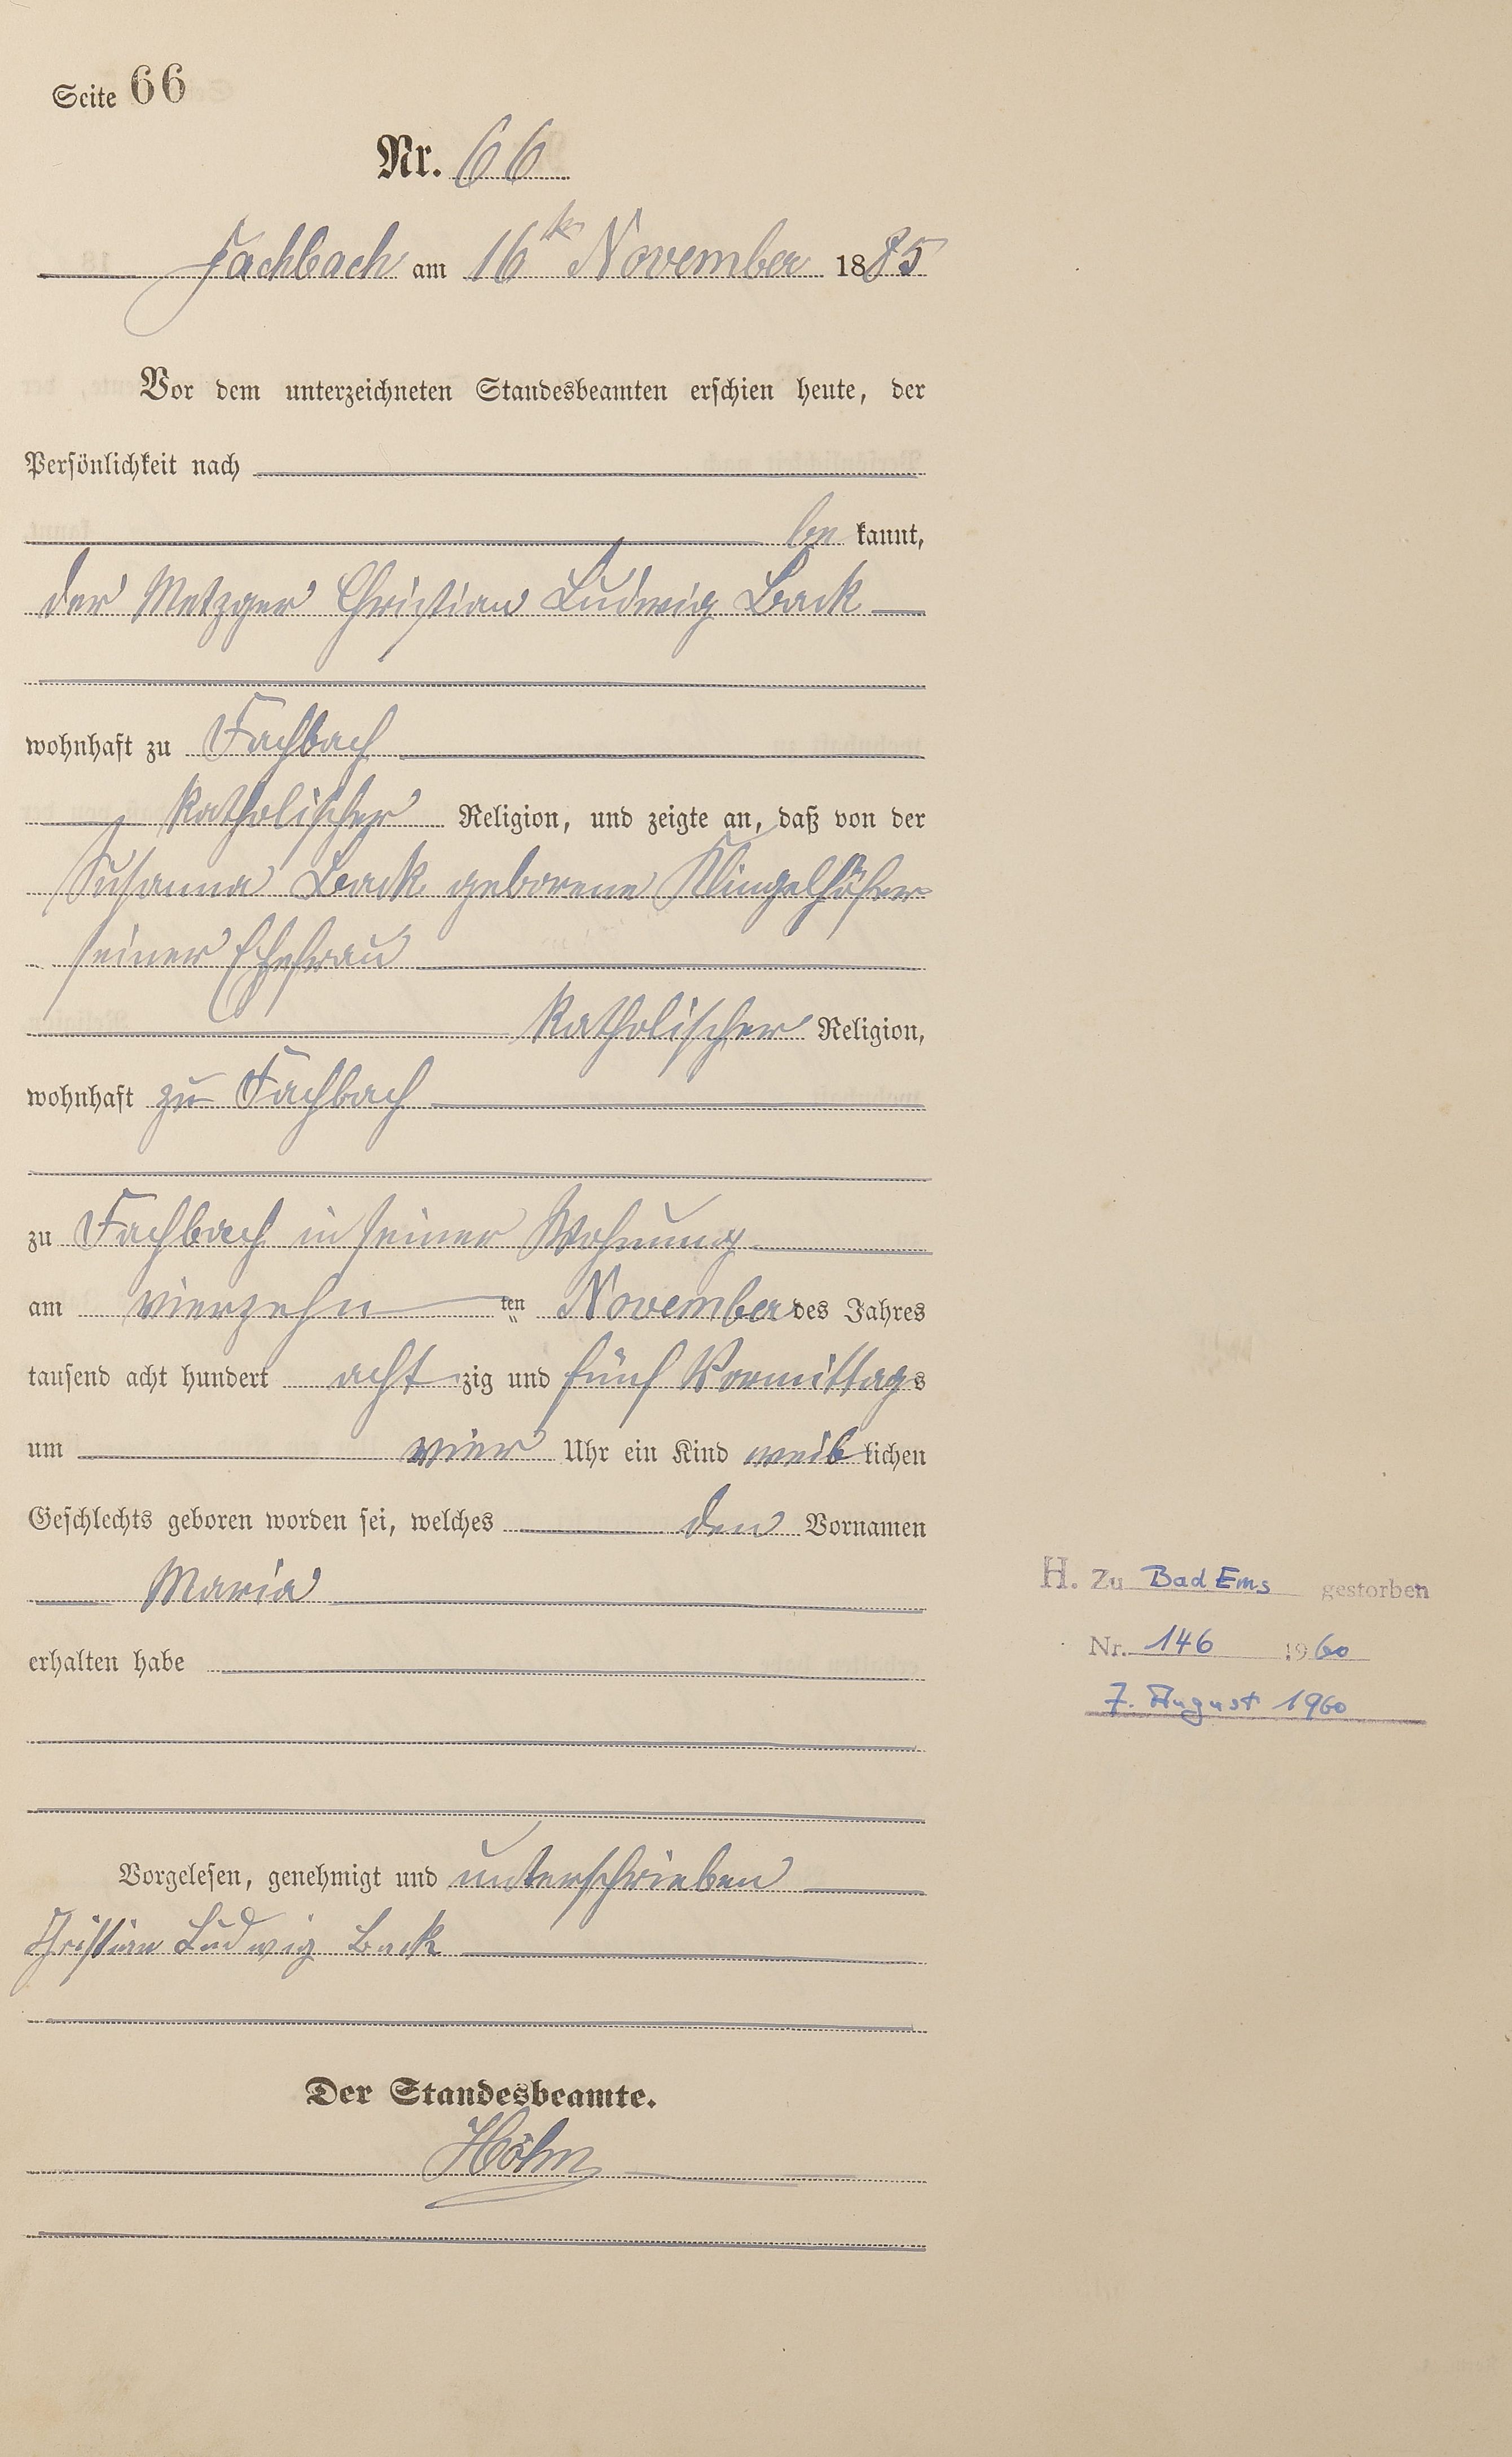 Seite 66
Nr. 66
Fachbach am 16ten November 1885
Vor dem unterzeichneten Standesbeamten erschien heute, der
Persönlichkeit nach
be kannt,
der Metzger Christian Ludwig Back
wohnhaft zu Fachbach
katholischer Religion, und zeigte an, daß von der
Susanna Back geborene Klingelhöfer
seiner Ehefrau
katholischer Religion,
wohnhaft zu Fachbach
zu Fachbach in seiner Wohnung
am vierzehn ten November des Jahres
tausend acht hundert acht zig und fünf Vormittags
um vier Uhr ein Kind weib lichen
Geschlechts geboren worden sei, welches den Vornamen
Maria
erhalten habe
H. Zu Bad Ems gestorben
Nr. 146 1960
7. August 1960
Vorgelesen, genehmigt und unterschrieben
Christian Ludwig Back
Der Standesbeamte.